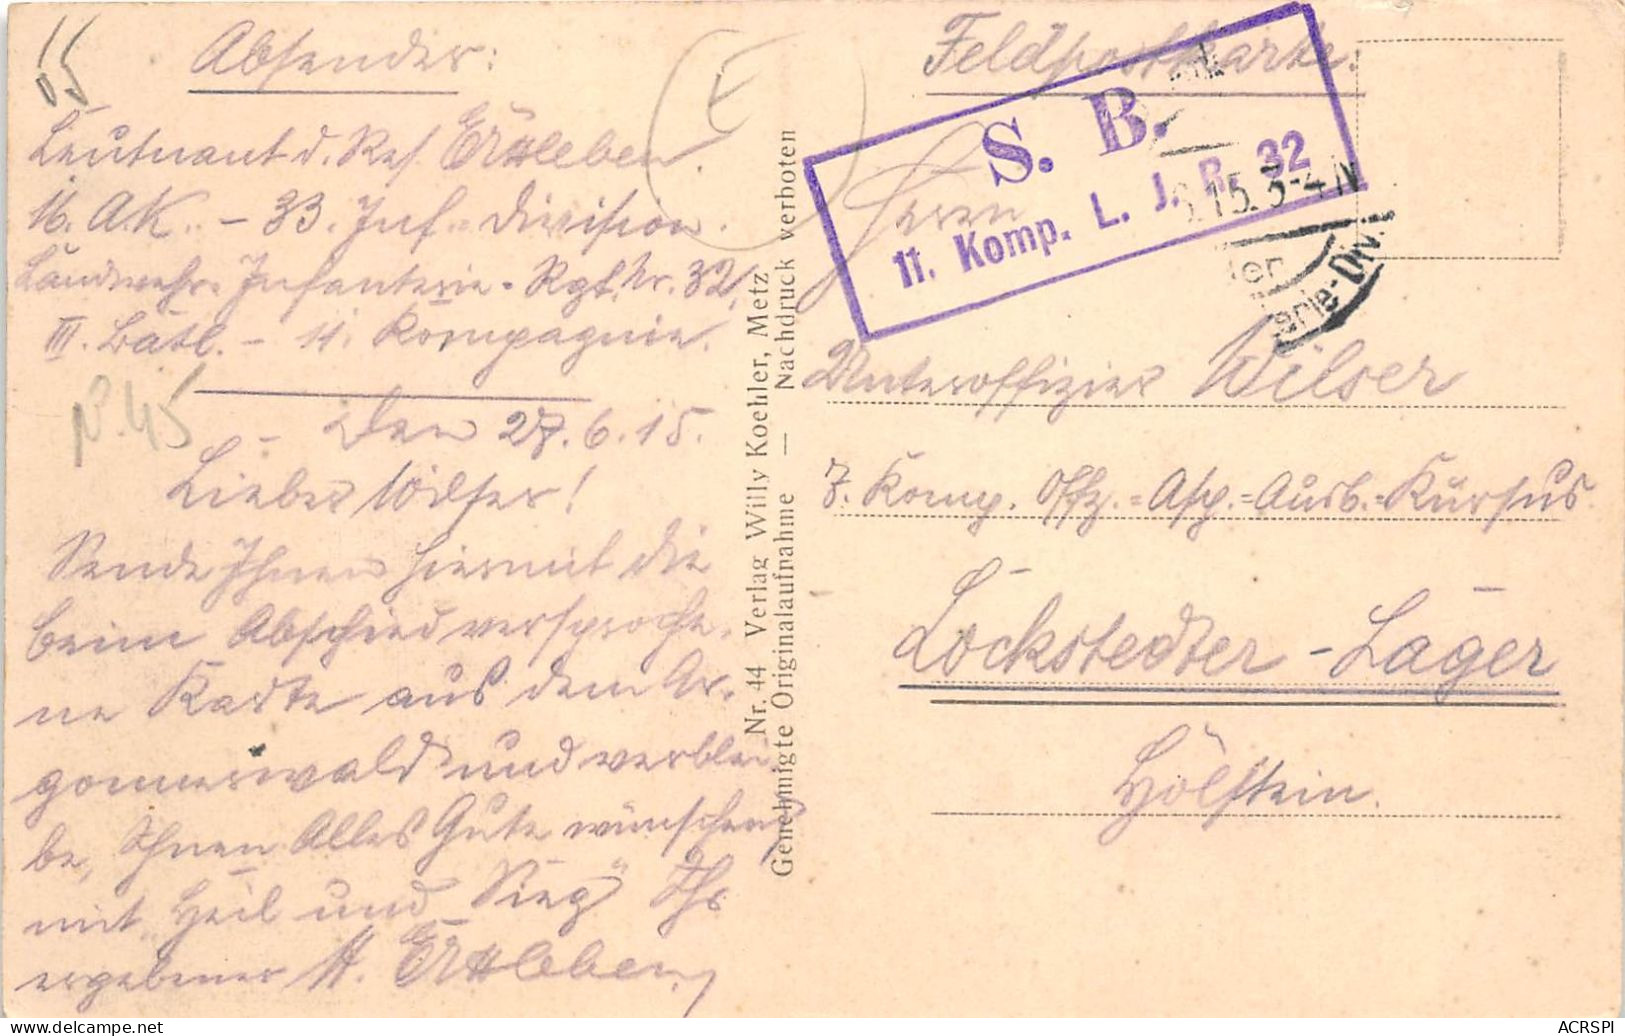 Absender:
Leutnant d. Res. Erxleben.
16. A.K. - 33. Inf.-Division.
Landwehr-Infanterie-Rgt. Nr. 32,
III. Batl. - 11. Kompagnie.
Den 27.6.15.
Lieber Wilser!
Sende Ihnen hiermit die
beim Abschied versproche-
ne Karte aus dem Ar-
gonnerwald und verblei-
be, Ihnen Alles Gute wünschend
mit „Heil und Sieg“ Ihr
ergebener H. Erxleben,
N. 45
Nr. 44 Verlag Willy Koehler, Metz
Genehmigte Originalaufnahme — Nachdruck verboten
Feldpostkarte.
S. B.
11. Komp. L. J. R. 32
6.15. 3-4 N
erie-Div.
Herrn
Unteroffizier Wilser
7. Komp. Offz.=Asp.=Ausb.=Kursus
Lockstedter-Lager
Holstein.
ACRSPI